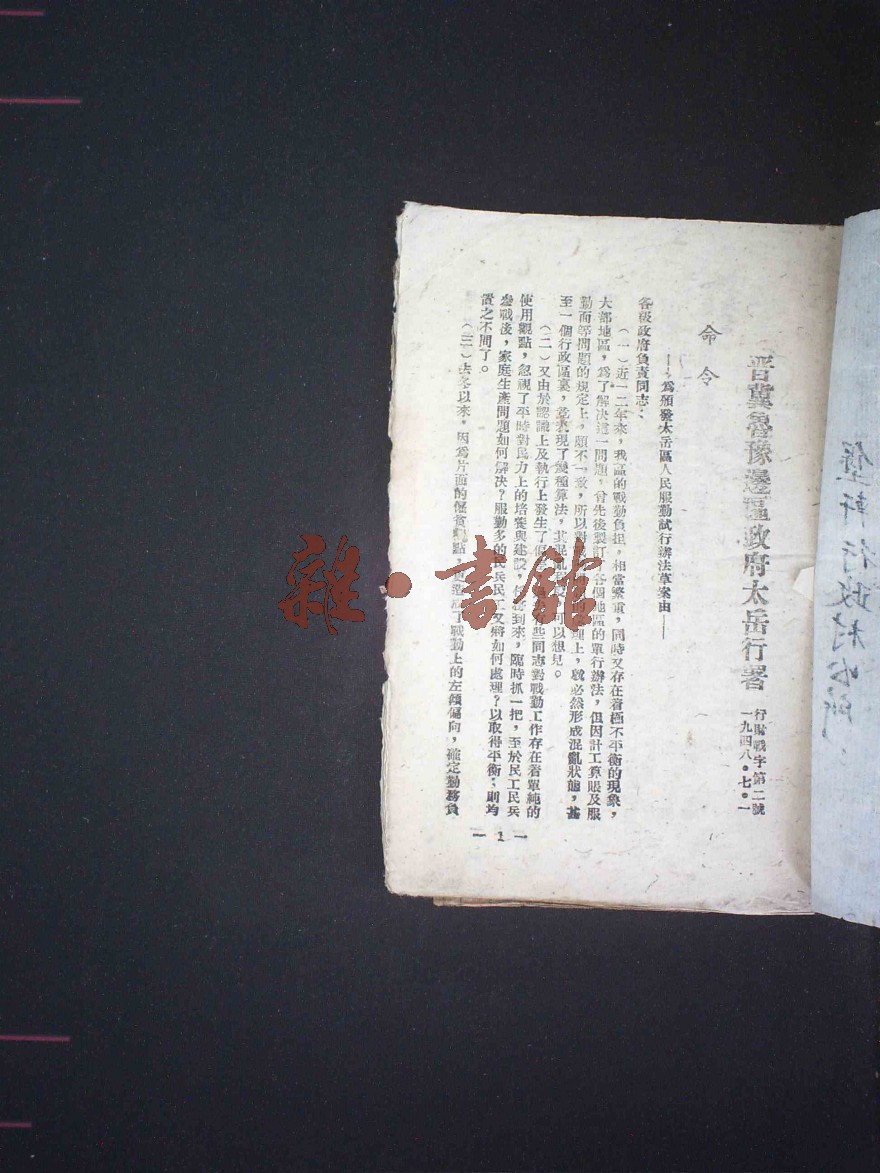 晋冀魯豫邊區政府太岳行署
行財戰字第二號
一九四八•七•一
命令
——為頒發太岳區人民服勤試行辦法草案由——
各級政府負責同志：
（一）近一二年來，我區的戰勤負担，相當繁重，同時又存在着極不平衡的現象，
大部地區，為了解決這一問題，曾先後製訂各個地區的單行辦法，但因計工算賬及服
勤而等問題的規定上，頗不一致，所以對理上，就必然形成混亂狀態，甚
至一個行政區裏，竟表現了幾種算法，其混亂可以想見。
（二）又由於認識上及執行上發生了些同志對戰勤工作存在着單純的
使用觀點，忽視了平時對民力上的培養與建設，任務到來，臨時抓一把，至於民工民兵
參戰後，家庭生產問題如何解決？服勤多的民兵民工又將如何處理？以取得平衡；則均
置之不問了。
（三）去冬以來，因為片面的觀點，更造成了戰勤上的左傾偏向，確定勤務負
— 1 —
行政村公所
雜•書館